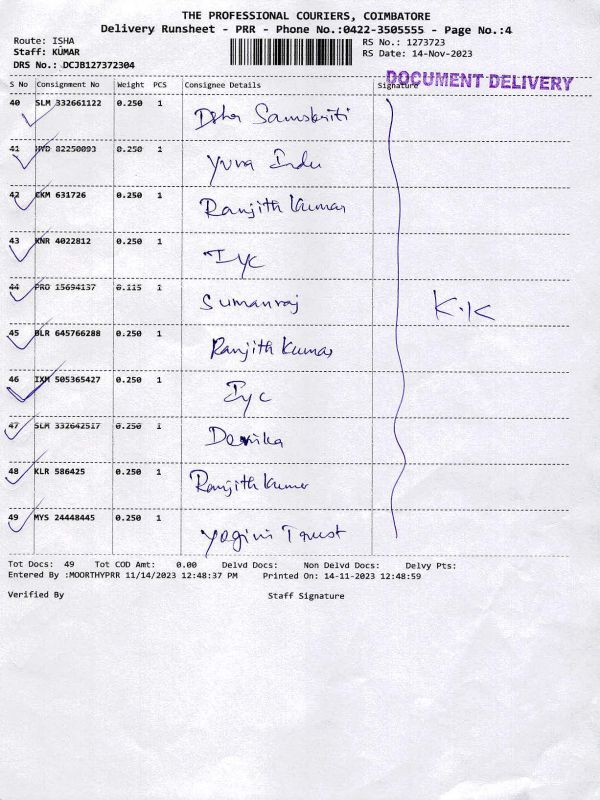 THE PROFESSIONAL COURIERS, COIMBATORE
Delivery Runsheet - PRR - Phone No.:0422-3505555 - Page No.:4
Route: ISHA RS No.: 1273723
Staff: KUMAR RS Date: 14-Nov-2023
DRS No.: DCJB127372304
DOCUMENT DELIVERY
S No Consignment No Weight PCS Consignee Details Signature
40 SLM 332661122 0.250 1 Isha Samskriti
41 HYD 82250093 0.250 1 Yuva Indu
42 EKM 631726 0.250 1 Ranjith Kumar
43 KNR 4022812 0.250 1 Iyc
44 PRO 15694137 0.115 1 Sumanraj K.K
45 BLR 645766288 0.250 1 Ranjith Kumar
46 IXM 505365427 0.250 1 Iyc
47 SLM 332642517 0.250 1 Devika
48 KLR 586425 0.250 1 Ranjith Kumar
49 MYS 24448445 0.250 1 Yogini Trust
Tot Docs: 49 Tot COD Amt: 0.00 Delvd Docs: Non Delvd Docs: Delvy Pts:
Entered By :MOORTHYPRR 11/14/2023 12:48:37 PM Printed On: 14-11-2023 12:48:59
Verified By Staff Signature